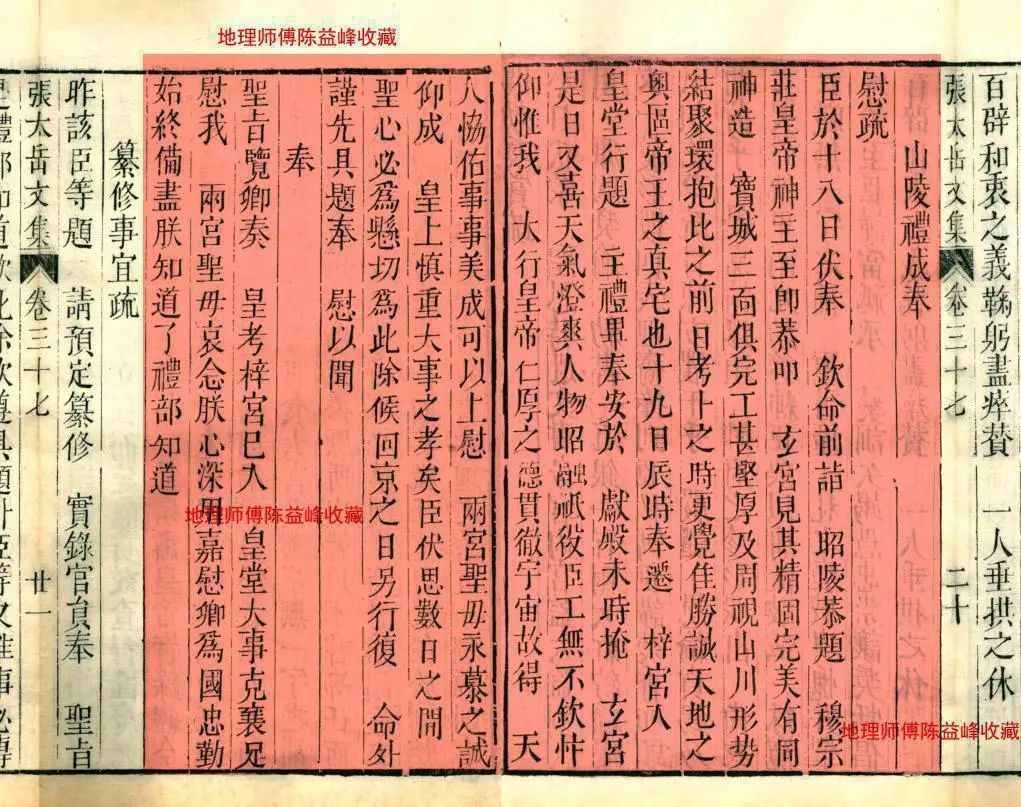 地理师傅陈益峰收藏
百辟和衷之義鞠躬盡瘁贊 一人垂拱之休
張太岳文集 卷三十七 二十
山陵禮成奉
慰疏
臣於十八日伏奉 欽命前詣 昭陵恭題 穆宗
莊皇帝神主至卽恭叩 玄宮見其精固完美有同
神造 寶城三面俱完工甚堅厚及周視山川形勢
結聚環抱此之前日考卜之時更覺佳勝誠天地之
奧區帝王之眞宅也十九日辰時奉遷 梓宮入
皇堂行題 主禮畢奉安於 獻殿未時掩 玄宮
是日又喜天氣澄爽人物昭融祇役臣工無不欽忭
仰惟我 大行皇帝仁厚之德貫徹宇宙故得 天
人協佑事事美成可以上慰 兩宮聖母永慕之誠
仰成 皇上慎重大事之孝矣臣伏思數日之間
聖心必爲懸切爲此除候回京之日另行復 命外
謹先具題奉 慰以聞
奉
聖旨覽卿奏 皇考梓宮已入 皇堂大事克襄足
慰我 兩宮聖母哀念朕心深用嘉慰卿爲國忠勤
始終備盡朕知道了禮部知道
纂修事宜疏
昨該臣等題 請預定纂修 實錄官員奉 聖旨
張太岳文集 卷三十七 廿一
地理师傅陈益峰收藏
地理师傅陈益峰收藏